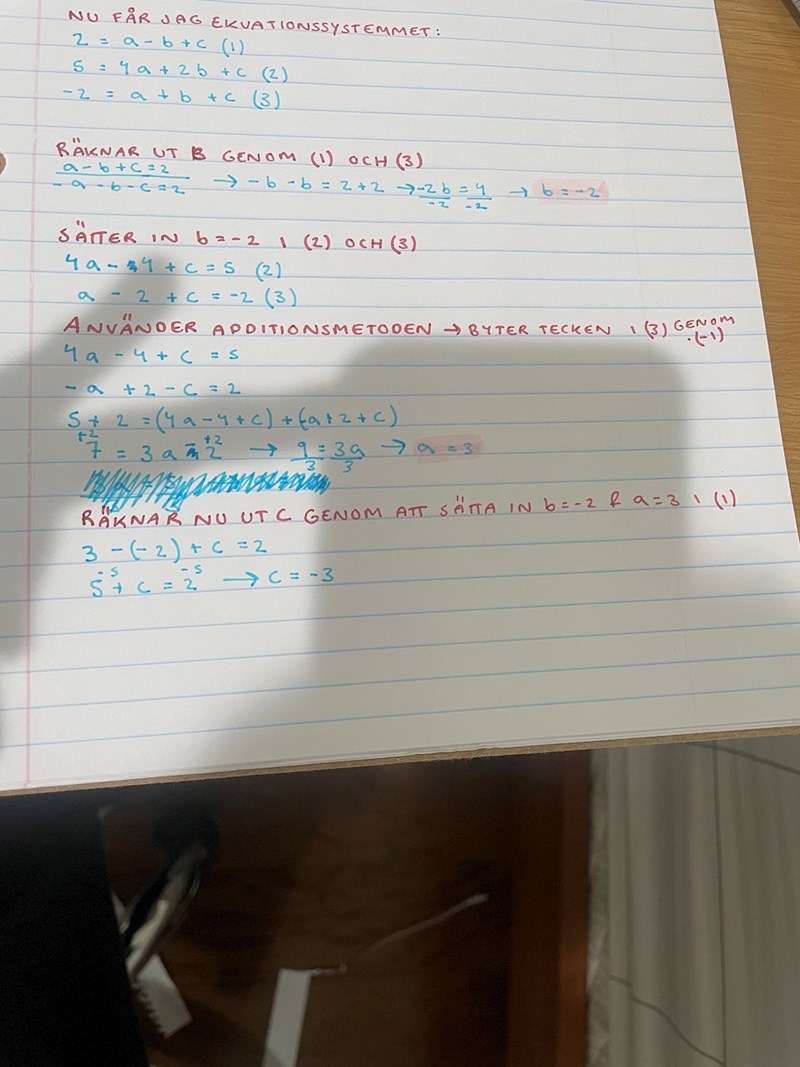 NU FÅR JAG EKVATIONSSYSTEMMET:
2 = a - b + c (1)
5 = 4a + 2b + c (2)
-2 = a + b + c (3)
RÄKNAR UT B GENOM (1) OCH (3)
a - b + c = 2
-a - b - c = 2 → -b - b = 2 + 2 → -2b/-2 = 4/-2 → b = -2
SÄTTER IN b = -2 I (2) OCH (3)
4a - 4 + c = 5 (2)
a - 2 + c = -2 (3)
ANVÄNDER ADDITIONSMETODEN → BYTER TECKEN I (3) GENOM ·(-1)
4a - 4 + c = 5
-a + 2 - c = 2
5 + 2 = (4a - 4 + c) + (-a + 2 + c)
+2 +2
7 = 3a - 2 → 9/3 = 3a/3 → a = 3
RÄKNAR NU UT C GENOM ATT SÄTTA IN b = -2 & a = 3 I (1)
3 - (-2) + c = 2
-5 -5
5 + c = 2 → c = -3